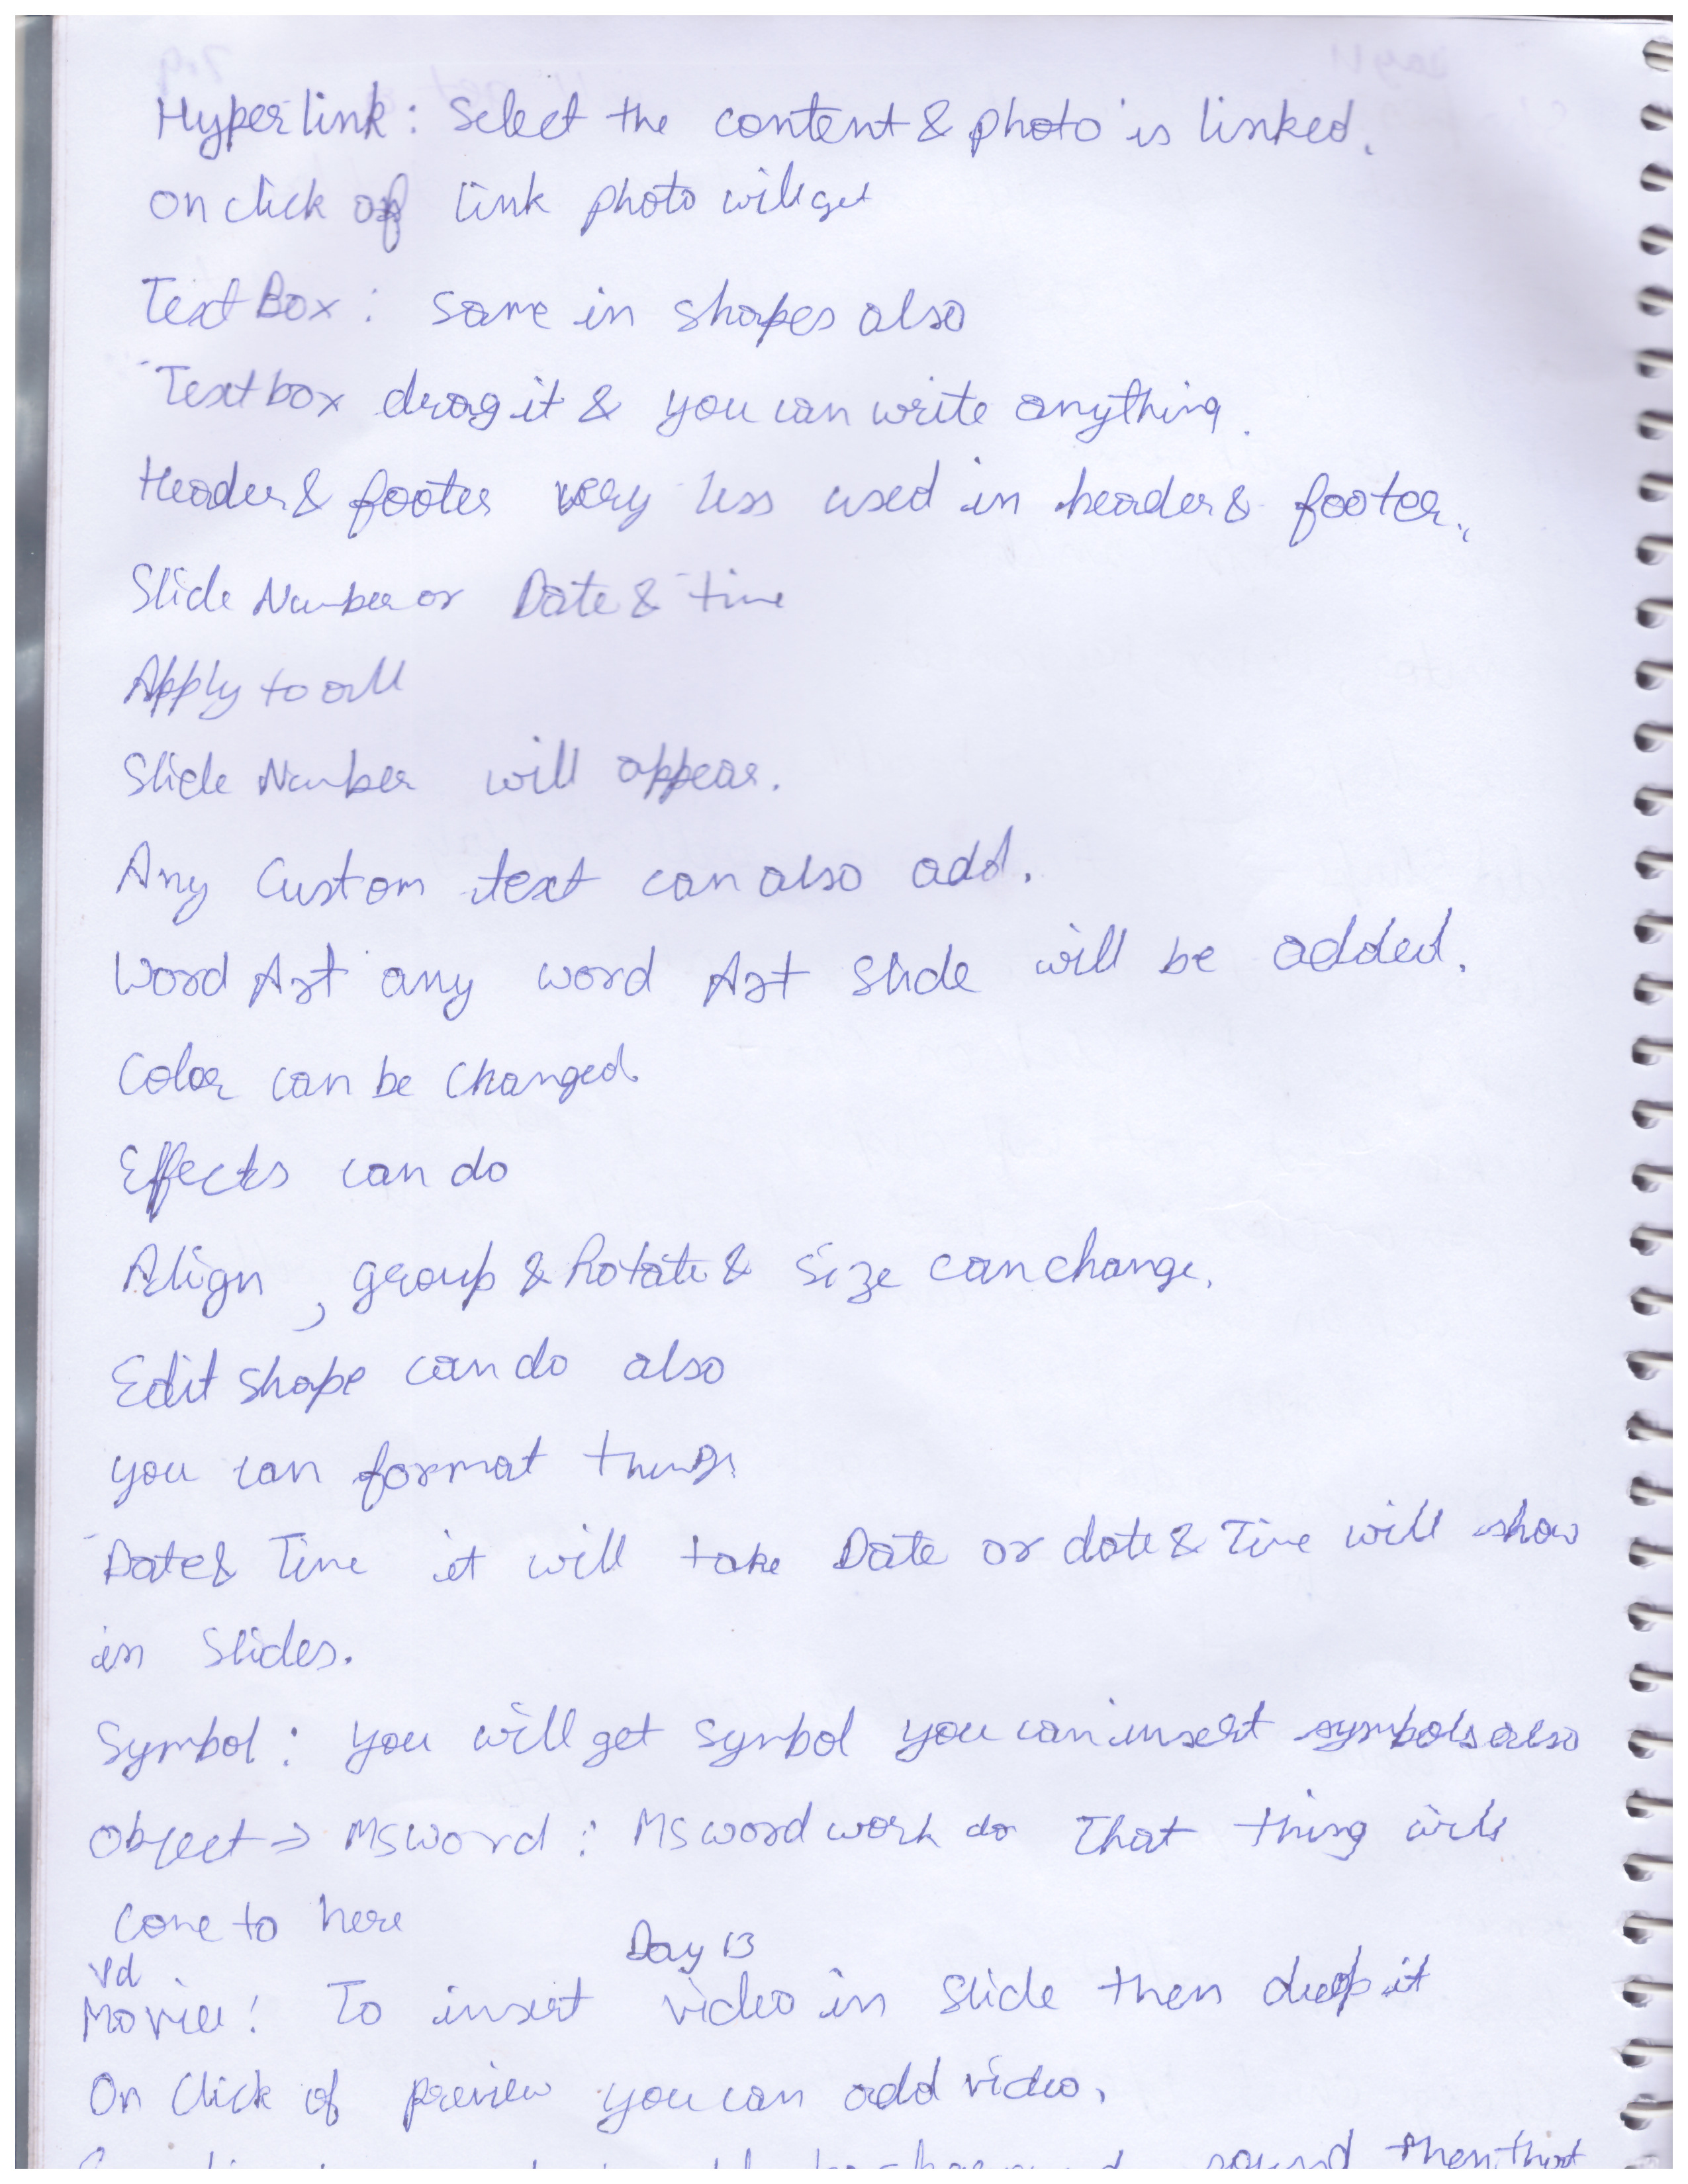 Hyperlink: Select the content & photo is linked.
on click of link photo will get
Text Box: Same in shapes also
Textbox drag it & you can write anything.
Header & footer very less used in header & footer.
Slide Number or Date & time
Apply to all
Slide Number will appear.
Any Custom text can also add.
Word Art any word Art Slide will be added.
Color can be changed.
Effects can do
Align, group & Rotate & size can change.
Edit shape can do also
you can format things
Date & Time it will take Date or date & Time will show
in Slides.
Symbol: you will get Symbol you can insert symbols also
Object => MS Word: MS word work do That thing will
Come to here
Day 13
Vd
Movie: To insert video in Slide then drop it
On Click of preview you can add video.
sound then that